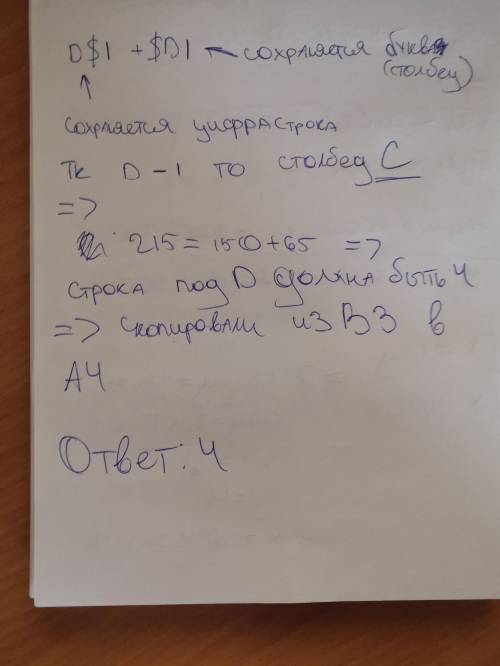 D$1 + $D1 ← сохраняется буква
(столбец)
↑
сохраняется цифра строка
Тк D-1 то столбец С
=>
215 = 150+65 =>
строка под D должна быть 4
=> скопировали из B3 в
A4
Ответ: 4